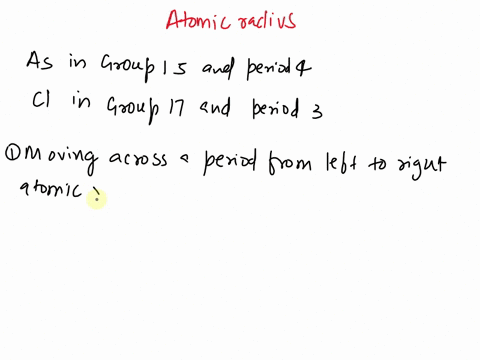 Atomic radius
As in Group 15 and period 4
Cl in Group 17 and period 3
① Moving across a period from left to right
atomic